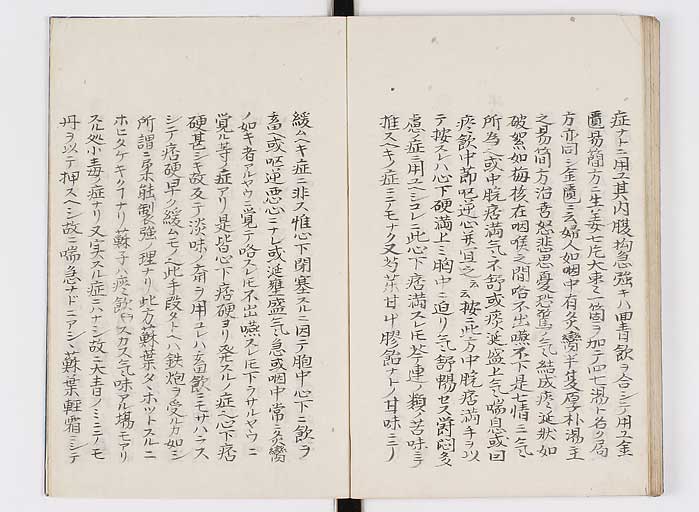 症ナトニ用ユ其内腹拘急強キハ四青飲ヲ合シテ用ユ金
匱易簡方ニ生姜七片大棗一箇ヲ加テ四七湯ト名ク局
方亦同シ金匱ニ云婦人如咽中有炙臠半夏厚朴湯主
之易簡方治喜怒悲思憂恐驚之氣結成痰涎狀如
破絮如梅核在咽喉之間咯不出嚥不下是七情之氣
所為ヘ或中脘痞満氣不舒或痰涎盛上氣喘息或因
痰飲中節嘔逆心并宜之云々按ニ此方中脘痞満手ヲ以
テ按スレハ心下硬満上ミ胸中ニ迫リ氣舒暢セス欝悶多
慮症ニ用ユヘシコレニ此心下痞満スレ𪜈芩連ノ類ノ苦味ニテ
推スヘキノ症ニテモナク又芍薬甘中膠飴ナトノ甘味ニテ
緩ムヘキ症ニ非ス惟心下閉塞スルニ因テ胞中心下ニ飲ヲ
畜ヘ或嘔逆悪心ニナレ或涎壅盛氣急或咽中常ニ炙臠
ノ如キ者アルヤウニ覚テ咯スレ𪜈不出嚥スレ𪜈下ラサルヤウニ
覚ル等ノ症アリ是皆心下痞硬ヨリ発スルノ症ヘ心下痞
硬甚シキ故反テ淡味ノ剤ヲ用ユレハ玄固飲ニモサハラス
シテ痞硬早ク緩ムモノ此手段タトヘハ鉄炮ヲ受ルカ如シ
所謂ニ柔能制強ノ理ナリ此方蘇葉タンホットスルニ
ホヒタケキクナリ蘇子ハ痰飲ヲスカス気味アル場モアリ
スル処小毒ノ症ナリ又実スル症ニハナシ故ニ大青ノミニテモ
丹ヲ以テ押スヘシ故ニ喘急ナドニアシヽ蘇葉軽霜ニシテ